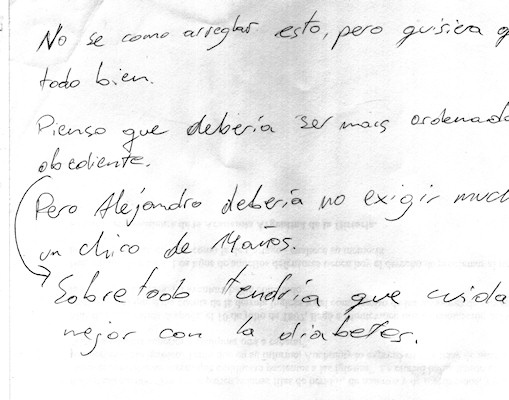 No se como arreglar esto, pero quisiera q
todo bien.
Pienso que debería ser mas ordenado
obediente.
Pero Alejandro debería no exigir much
un chico de 14años.
Sobretodo tendría que cuida
mejor con la diabetes.